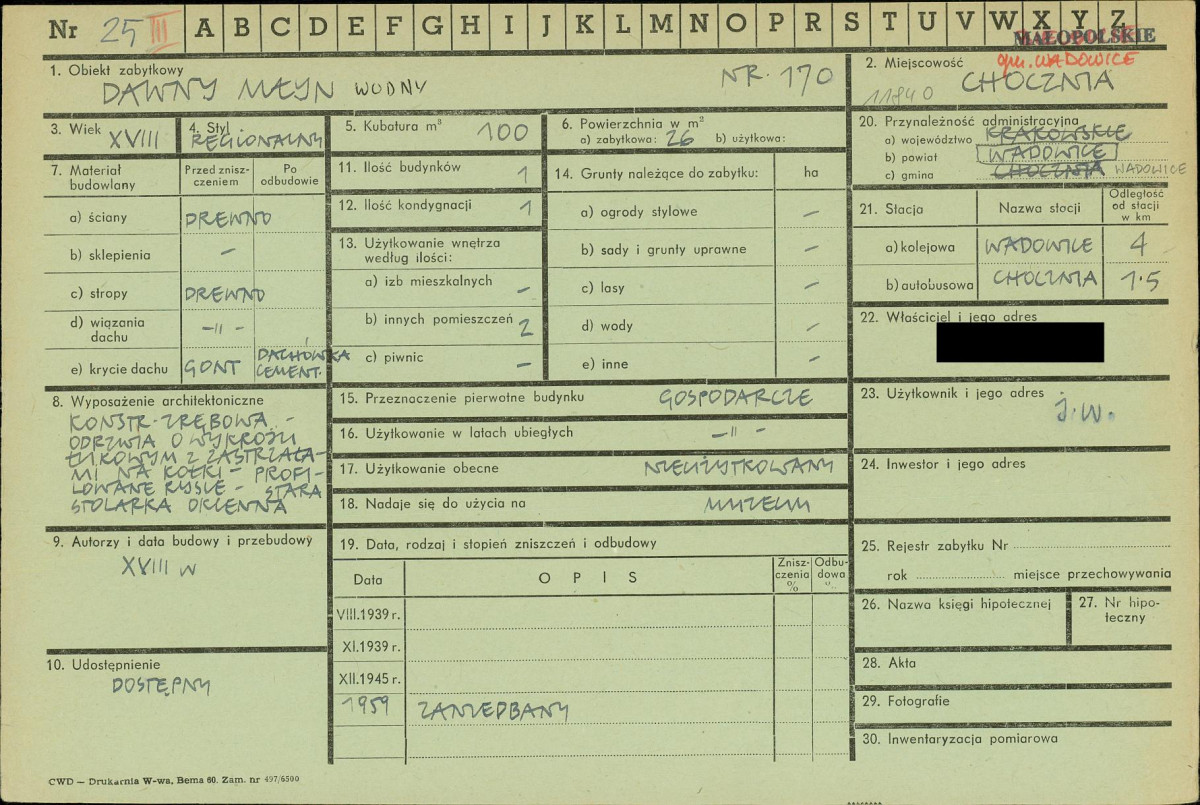 Nr 25 III A B C D E F G H I J K L M N O P R S T U V W X Y Z
MAŁOPOLSKIE
gm. WADOWICE
1. Obiekt zabytkowy
DAWNY MŁYN WODNY NR. 170
2. Miejscowość
11840 CHOCZNIA
3. Wiek XVIII
4. Styl
REGIONALNY
5. Kubatura m³ 100
6. Powierzchnia w m²
a) zabytkowa: 26 b) użytkowa:
20. Przynależność administracyjna
a) województwo KRAKOWSKIE
b) powiat WADOWICE
c) gmina CHOCZNIA WADOWICE
7. Materiał budowlany
Przed zniszczeniem
Po odbudowie
a) ściany DREWNO
b) sklepienia –
c) stropy DREWNO
d) wiązania dachu –〃–
e) krycie dachu GONT DACHÓWKA CEMENT.
11. Ilość budynków 1
12. Ilość kondygnacji 1
13. Użytkowanie wnętrza
według ilości:
a) izb mieszkalnych –
b) innych pomieszczeń 2
c) piwnic –
14. Grunty należące do zabytku: ha
a) ogrody stylowe –
b) sady i grunty uprawne –
c) lasy –
d) wody –
e) inne –
21. Stacja Nazwa stacji Odległość od stacji w km
a) kolejowa WADOWICE 4
b) autobusowa CHOCZNIA 1.5
22. Właściciel i jego adres
8. Wyposażenie architektoniczne
KONSTR. ZRĘBOWA –
ODRZWIA O WYKROJU
ŁUKOWYM Z ZASTRZAŁA-
MI NA KOŁKI – PROFI-
LOWANE RYSIE – STARA
STOLARKA OKIENNA
15. Przeznaczenie pierwotne budynku GOSPODARCZE
16. Użytkowanie w latach ubiegłych –〃–
17. Użytkowanie obecne NIEUŻYTKOWANY
18. Nadaje się do użycia na MUZEUM
23. Użytkownik i jego adres
j.w.
24. Inwestor i jego adres
9. Autorzy i data budowy i przebudowy
XVIII w
19. Data, rodzaj i stopień zniszczeń i odbudowy
Data OPIS Zniszczenia % Odbudowa %
VIII.1939 r.
XI.1939 r.
XII.1945 r.
1959 ZANIEDBANY
25. Rejestr zabytku Nr
rok miejsce przechowywania
26. Nazwa księgi hipotecznej
27. Nr hipoteczny
10. Udostępnienie
DOSTĘPNY
28. Akta
29. Fotografie
30. Inwentaryzacja pomiarowa
CWD — Drukarnia W-wa, Bema 60. Zam. nr 497/6500